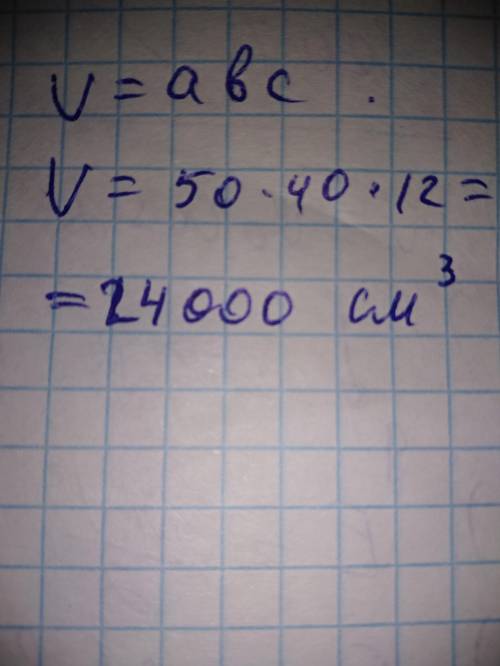 V = авс.
V = 50 · 40 · 12 =
= 24000 см³